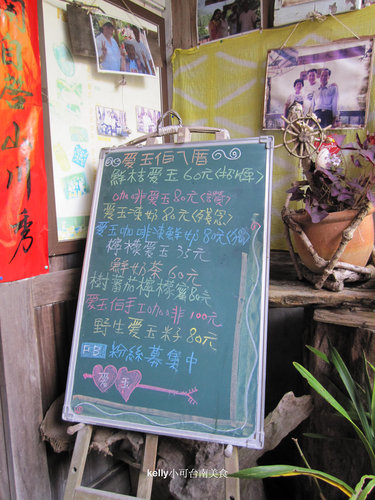 山川秀
愛玉伯ㄟ厝
鮮桂愛玉60元<招牌>
咖啡愛玉80元<讚>
愛玉凍奶80元
愛玉咖啡凍鮮奶80元
檸檬愛玉35元
鮮奶茶60元
樹蕃茄檸檬蜜80元
愛玉伯手工咖啡100元
野生愛玉籽80元
FB 粉絲募集中
愛玉
kelly小可台南美食